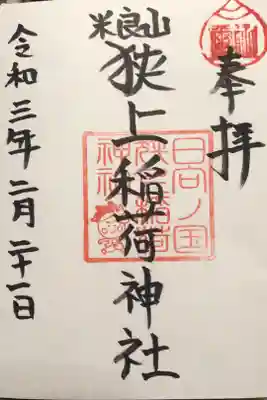 奉拝
米良山
狭上稲荷神社
日向ノ国
狭上稲荷
神社
令和三年二月二十一日